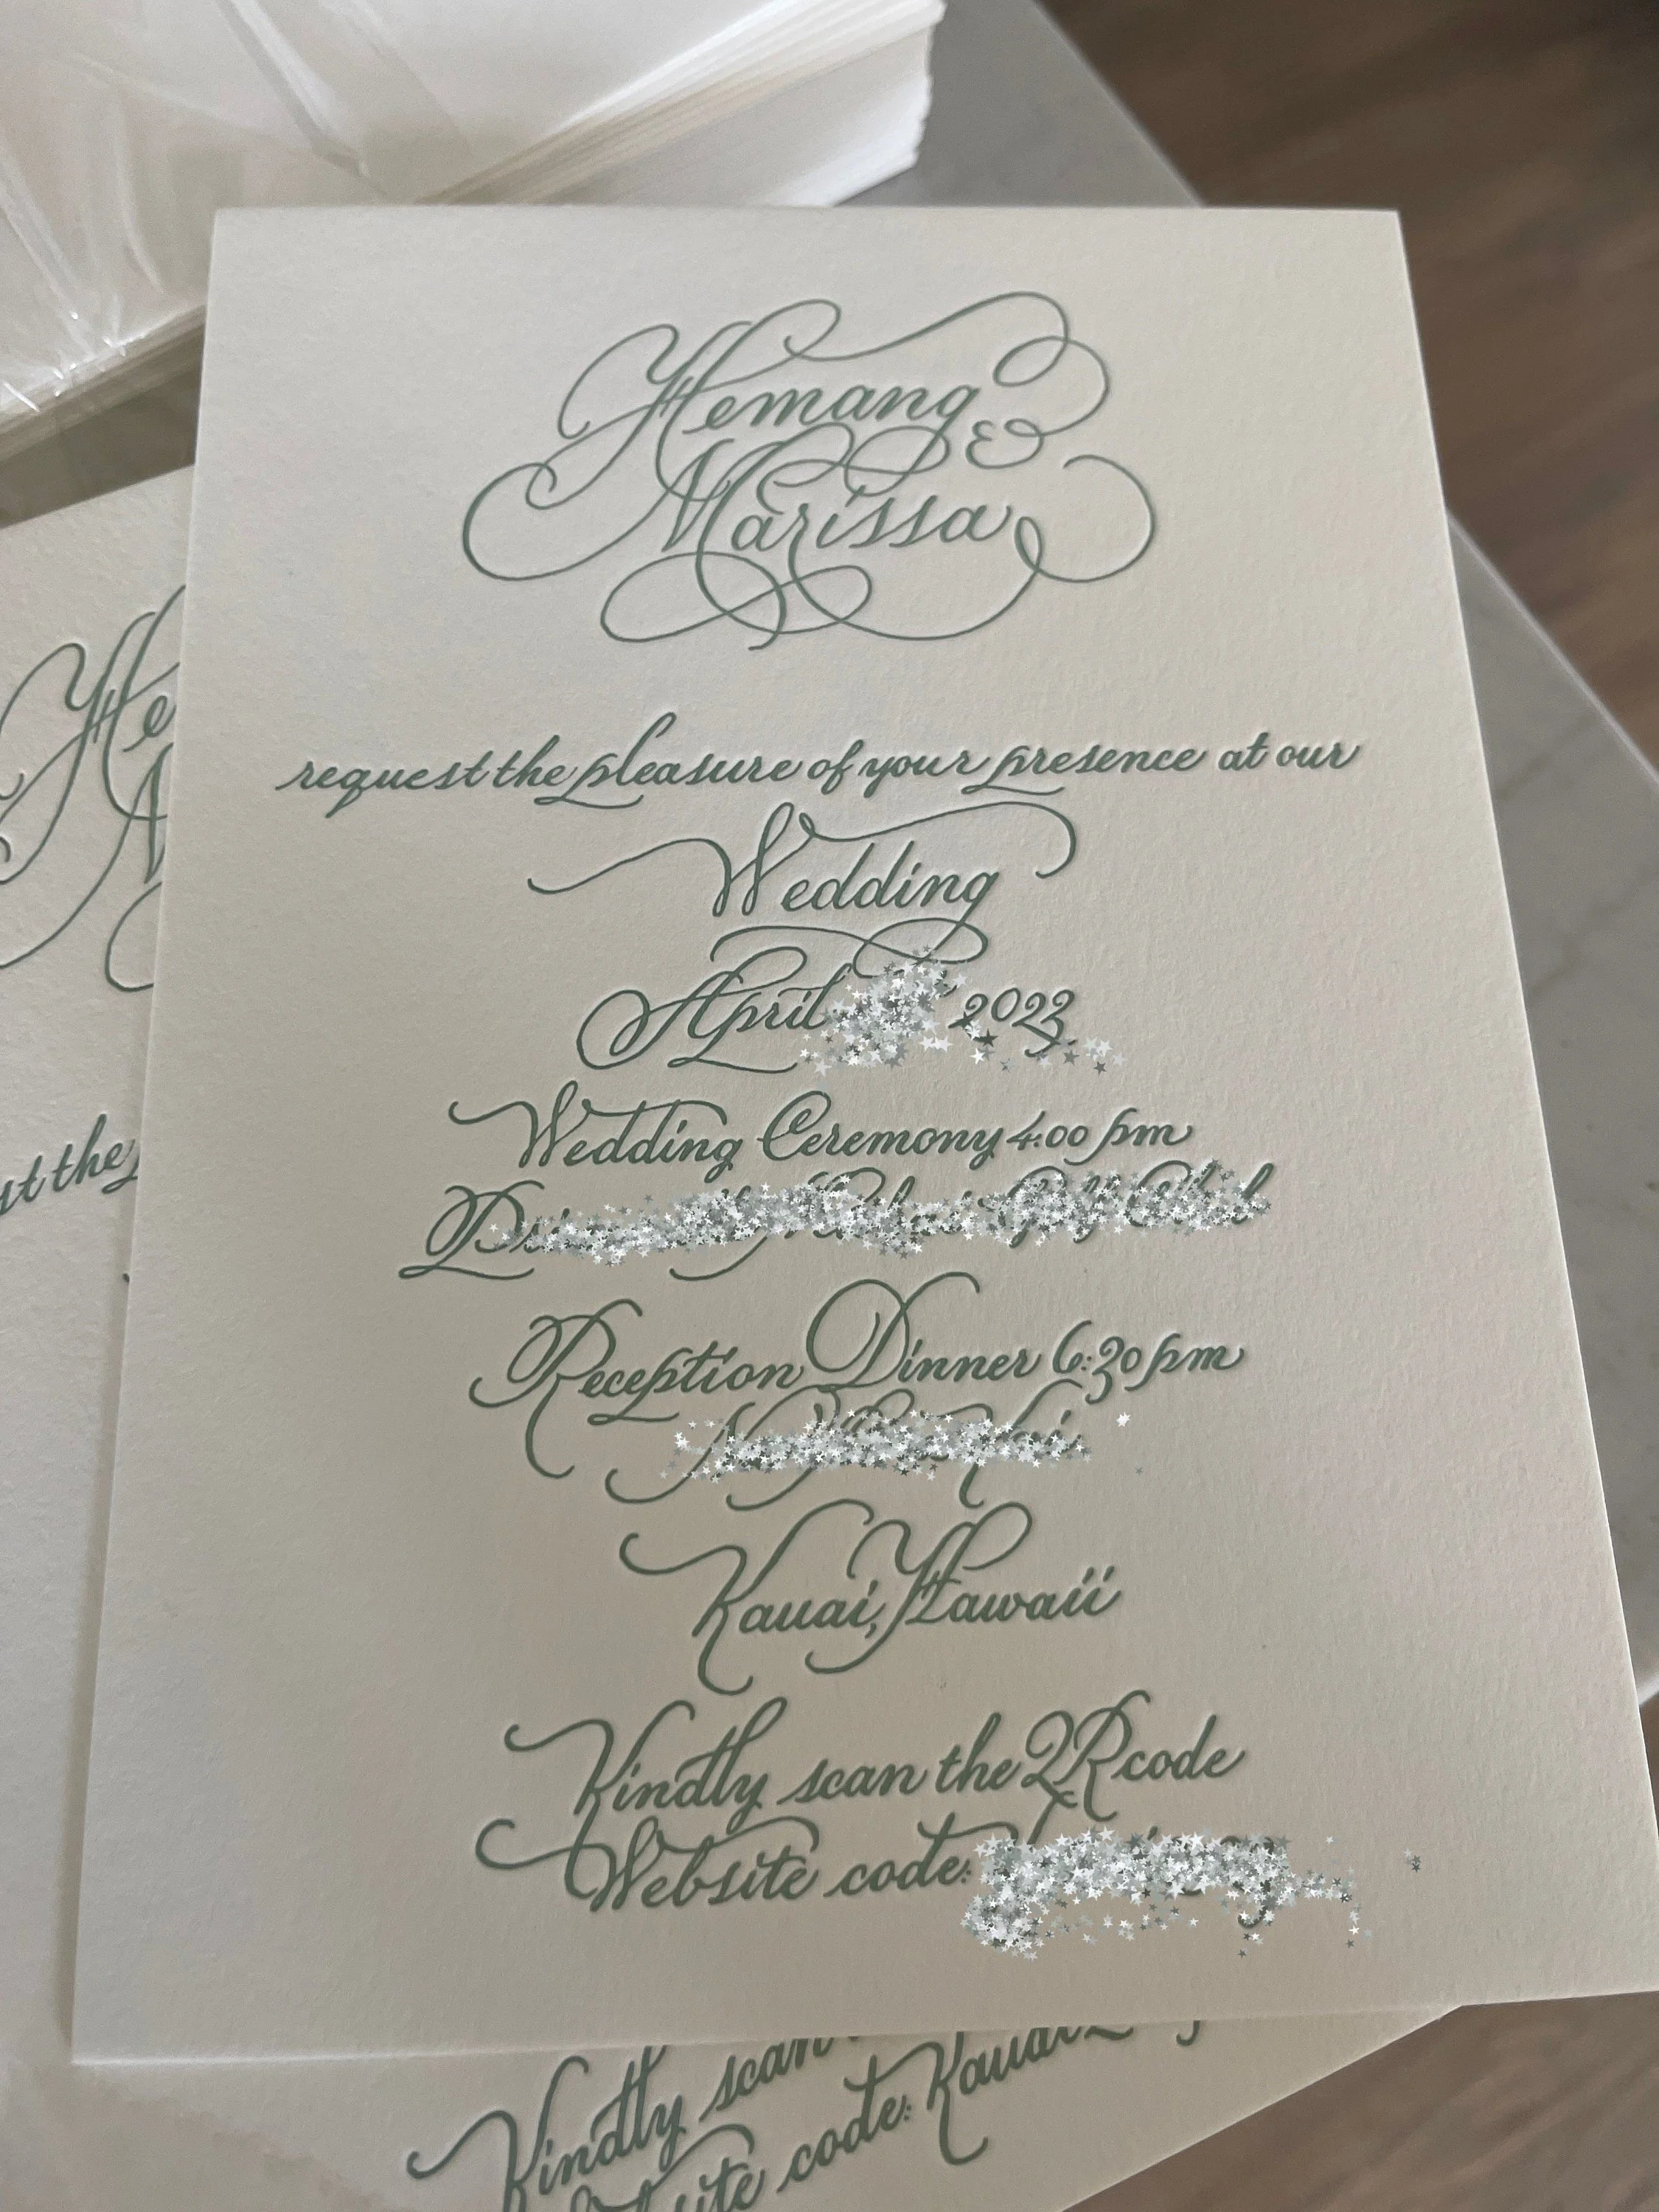 Hemang &
Marissa
request the pleasure of your presence at our
Wedding
April 2023
Wedding Ceremony 4:00 pm
Reception Dinner 6:30 pm
Kauai, Hawaii
Kindly scan the QR code
Website code:
He
st the
Kindly scan
site code: